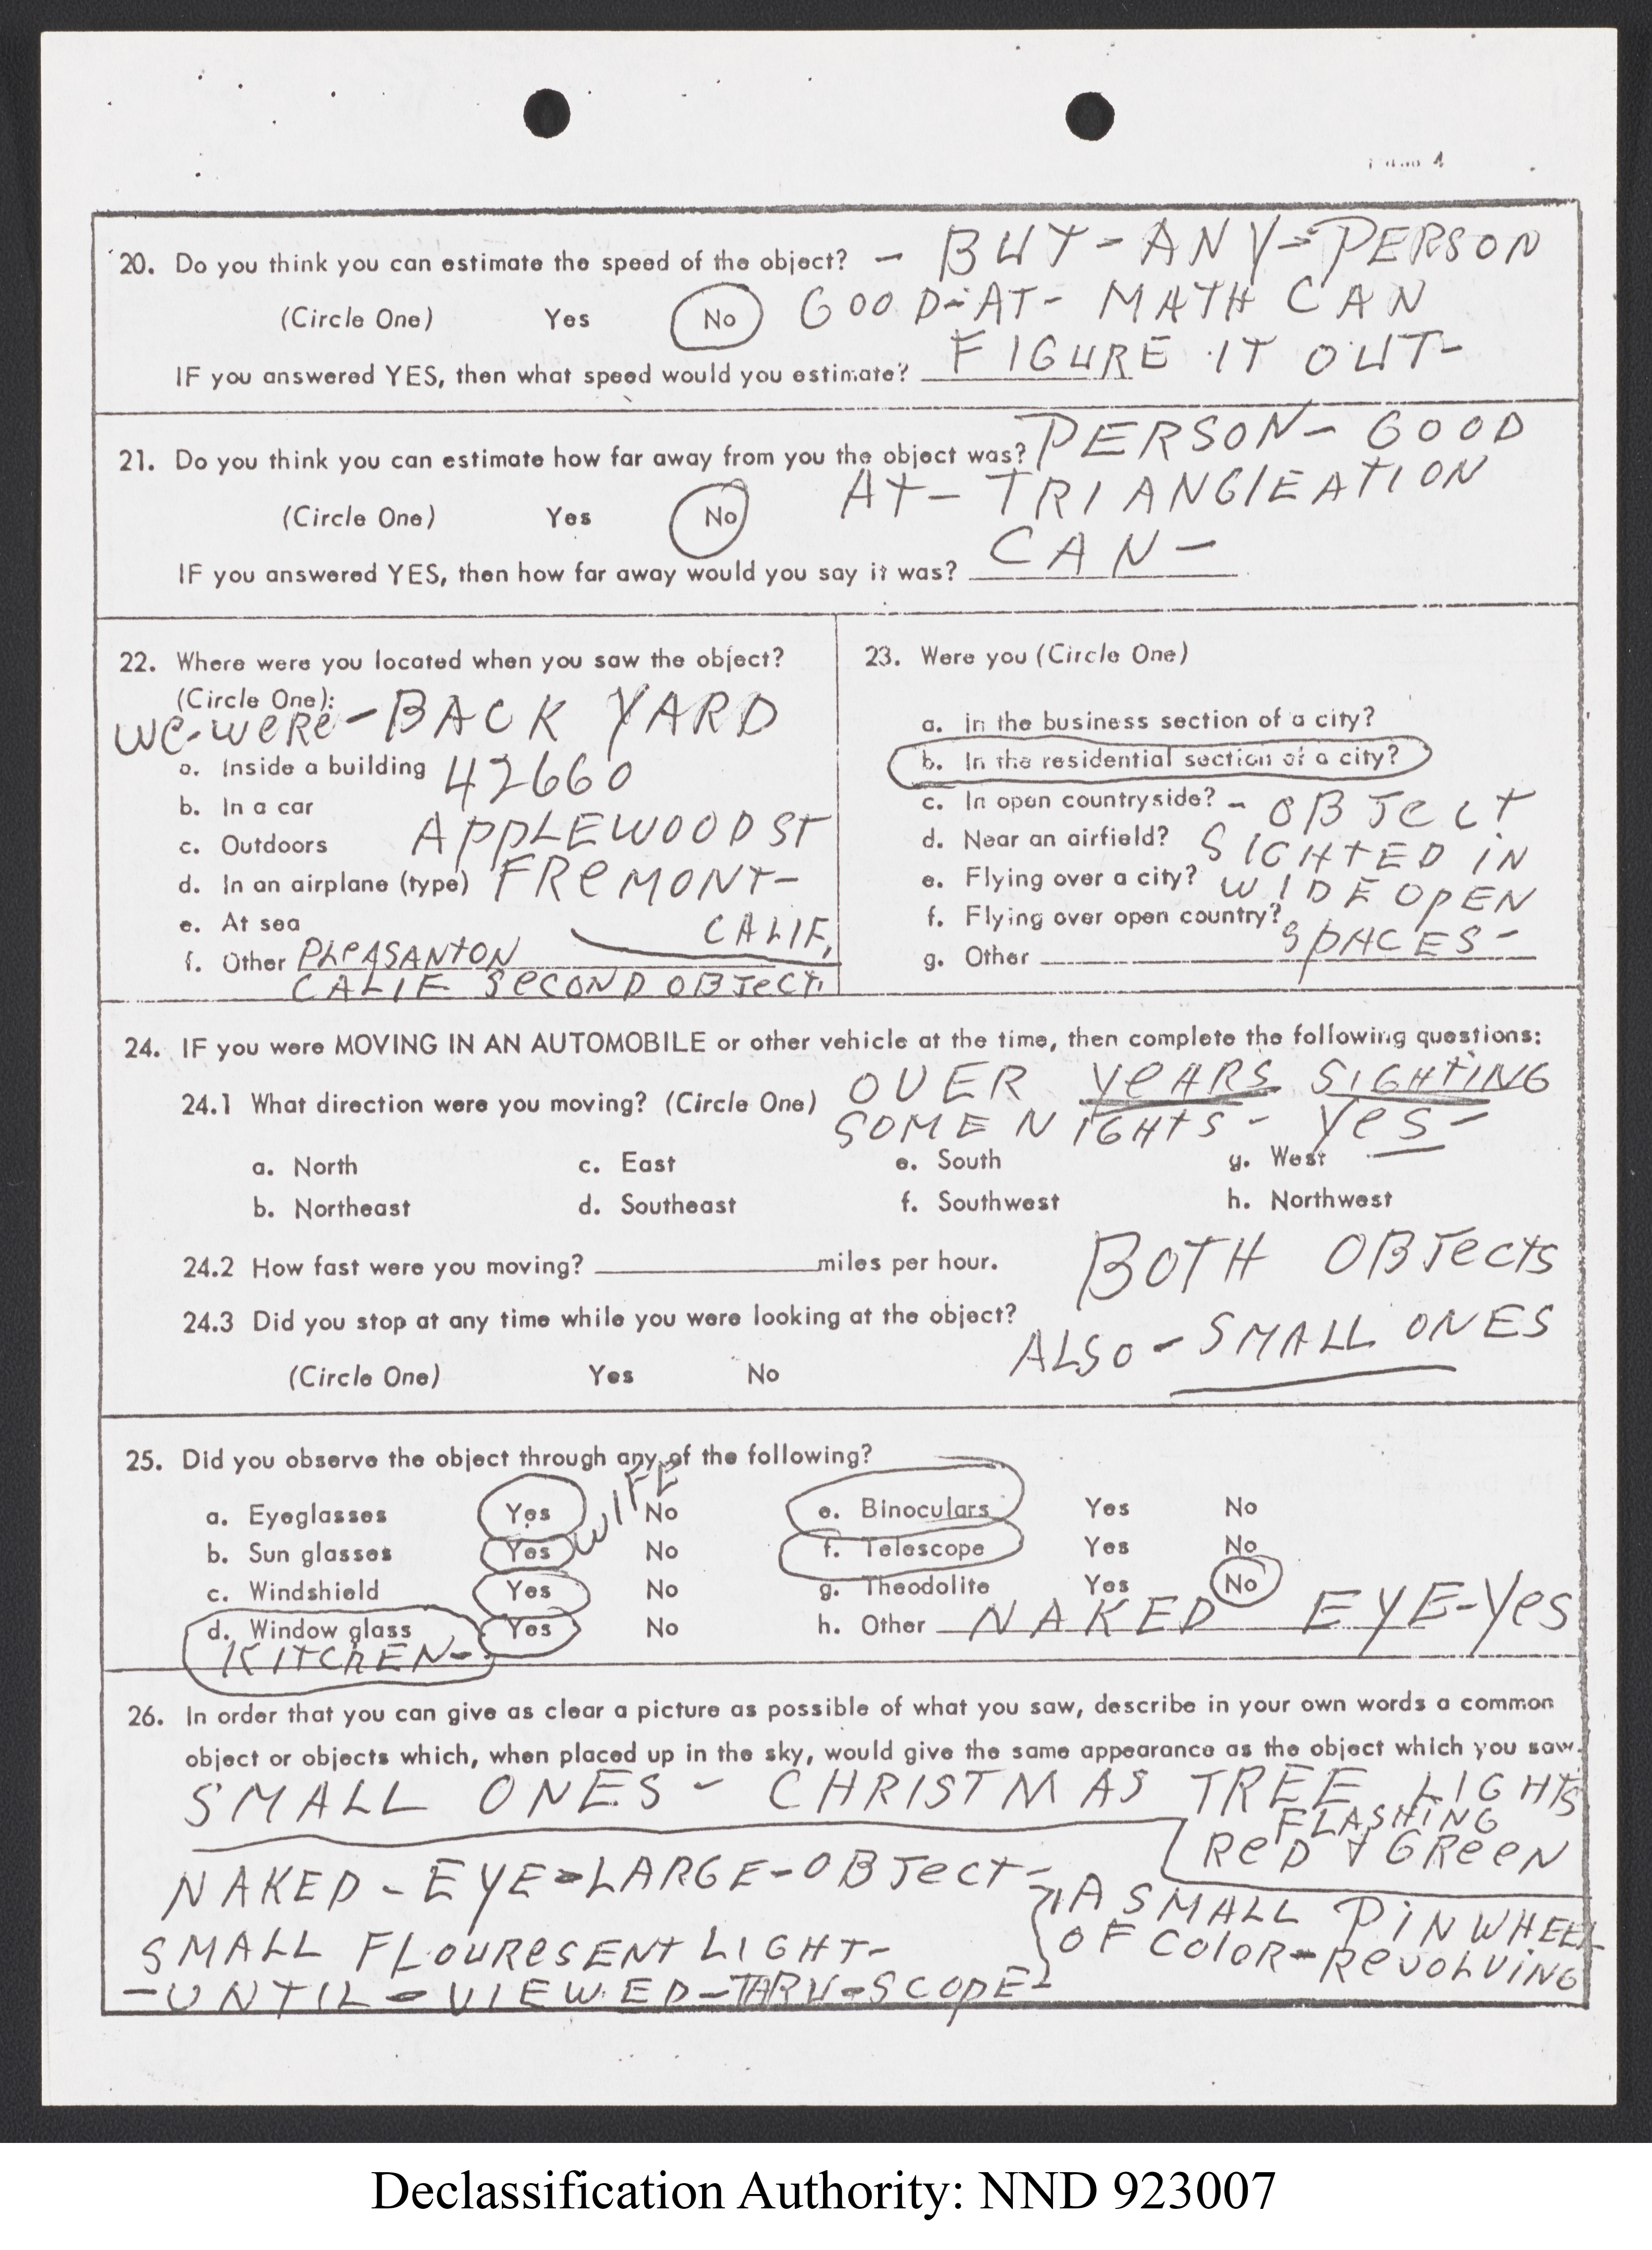 Page 4
20. Do you think you can estimate the speed of the object? - BUT-ANY-PERSON
(Circle One) Yes No GOOD-AT- MATH CAN
IF you answered YES, then what speed would you estimate? FIGURE IT OUT-
21. Do you think you can estimate how far away from you the object was? PERSON- GOOD
(Circle One) Yes No AT- TRIANGlEATION
IF you answered YES, then how far away would you say it was? CAN-
22. Where were you located when you saw the object?
(Circle One):
We-weRe-BACK YARD
a. Inside a building 42660
b. In a car
c. Outdoors APPLEWOOD ST
d. In an airplane (type) FReMONT-
e. At sea CALIF,
f. Other PLeASANTON
CALIF SeCOND OBJeCT.
23. Were you (Circle One)
a. in the business section of a city?
b. In the residential section of a city?
c. In open countryside? - OBJeCT
d. Near an airfield? SIGHTED IN
e. Flying over a city? WIDE OPEN
f. Flying over open country? SPACES-
g. Other
24. IF you were MOVING IN AN AUTOMOBILE or other vehicle at the time, then complete the following questions:
24.1 What direction were you moving? (Circle One) OVER YeARS SIGHTING
SOME NIGHTS- YeS-
a. North c. East e. South g. West
b. Northeast d. Southeast f. Southwest h. Northwest
24.2 How fast were you moving? miles per hour. BOTH OBJeCTS
24.3 Did you stop at any time while you were looking at the object?
ALSO-SMALL ONES
(Circle One) Yes No
25. Did you observe the object through any of the following?
a. Eyeglasses Yes WIFE No e. Binoculars Yes No
b. Sun glasses Yes No f. Telescope Yes No
c. Windshield Yes No g. Theodolite Yes No
d. Window glass Yes No h. Other NAKED EYE-Yes
KITCHEN-
26. In order that you can give as clear a picture as possible of what you saw, describe in your own words a common
object or objects which, when placed up in the sky, would give the same appearance as the object which you saw.
SMALL ONES - CHRISTMAS TREE LIGHTS
FLASHING
ReD + GReeN
NAKED-EYE-LARGE-OBJeCT-
SMALL FLOUReSENT LIGHT-
-UNTIL-VIEWED-THRU-SCOPE-
A SMALL PINWHEEL
OF COLOR-ReVOLVING
Declassification Authority: NND 923007